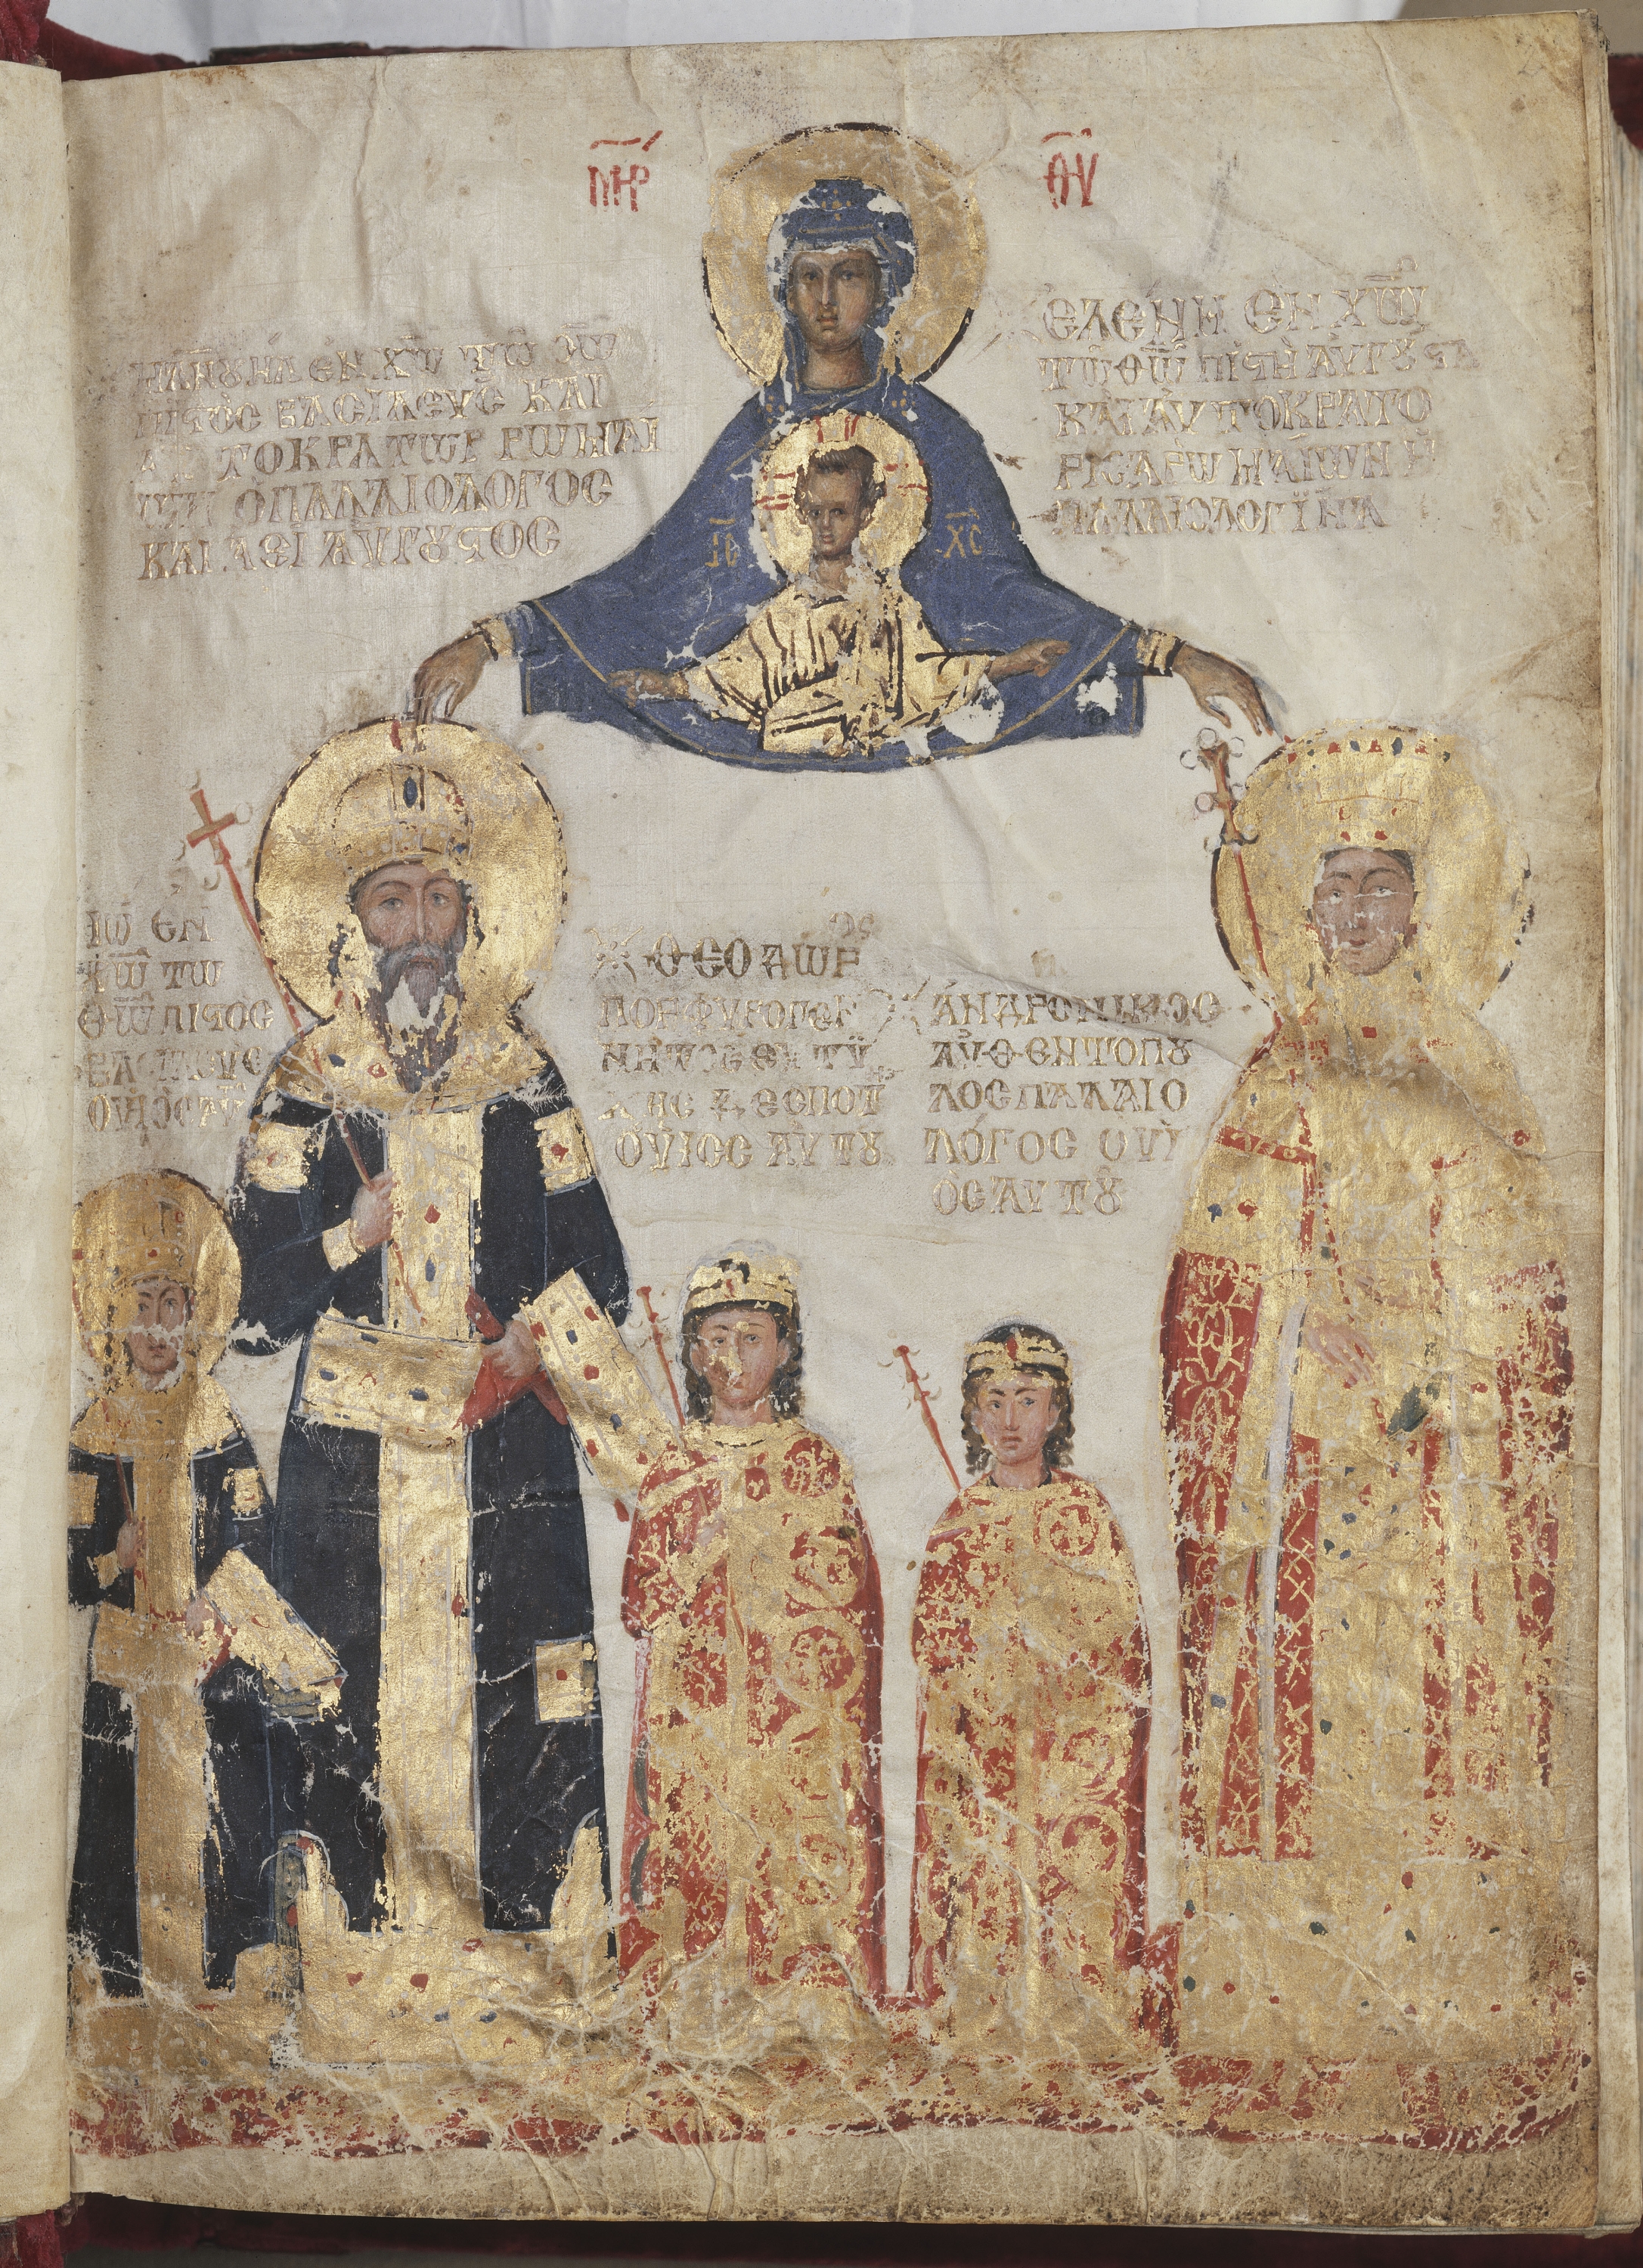 ΜΗΡ ΘΥ
ΜΑΝΟΥΗΛ ΕΝ ΧΩ ΤΩ ΘΩ
ΠΙϚΟϹ ΒΑϹΙΛΕΥϹ ΚΑΙ
ΑΥΤΟΚΡΑΤΩΡ ΡΩΜΑΙ
ΩΝ Ο ΠΑΛΑΙΟΛΟΓΟϹ
ΚΑΙ ΑΕΙ ΑΥΓΟΥϚΟϹ
ΕΛΕΝΗ ΕΝ ΧΩ
ΤΩ ΘΩ ΠΙϚΗ ΑΥΓΟΥϚΑ
ΚΑΙ ΑΥΤΟΚΡΑΤΟ
ΡΙϹΑ ΡΩΜΑΙΩΝ Η
ΠΑΛΑΙΟΛΟΓΙΝΑ
ΙϹ ΧϹ
ΙΩ ΕΝ
ΧΩ ΤΩ
ΘΩ ΠΙϚΟϹ
ΒΑϹΙΛΕΥϹ
Ο ΥΙΟϹ ΑΥΤΟΥ
ΘΕΟΔΩΡΟϹ
ΠΟΡΦΥΡΟΓΕΝ
ΝΗΤΟϹ ΕΥΤΥ
ΧΗϹ ΔΕϹΠΟΤ
Ο ΥΙΟϹ ΑΥΤΟΥ
ΑΝΔΡΟΝΙΚΟϹ
ΑΥΘΕΝΤΟΠΟΥ
ΛΟϹ ΠΑΛΑΙΟ
ΛΟΓΟϹ Ο ΥΙ
ΟϹ ΑΥΤΟΥ